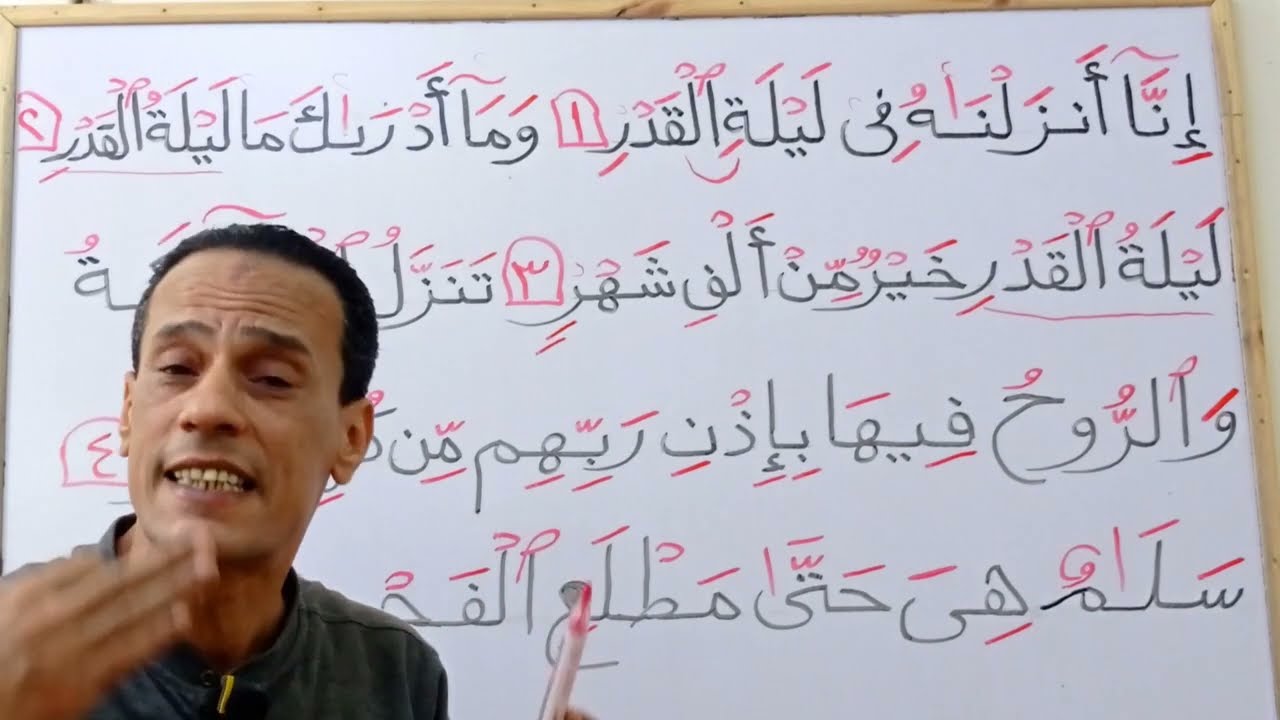 إِنَّآ أَنزَلْنَـٰهُ فِى لَيْلَةِ ٱلْقَدْرِ ١ وَمَآ أَدْرَىٰكَ مَا لَيْلَةُ ٱلْقَدْرِ ٢
لَيْلَةُ ٱلْقَدْرِ خَيْرٌ مِّنْ أَلْفِ شَهْرٍ ٣ تَنَزَّلُ
وَٱلرُّوحُ فِيهَا بِإِذْنِ رَبِّهِم مِّن ٤
سَلَـٰمٌ هِىَ حَتَّىٰ مَطْلَعِ